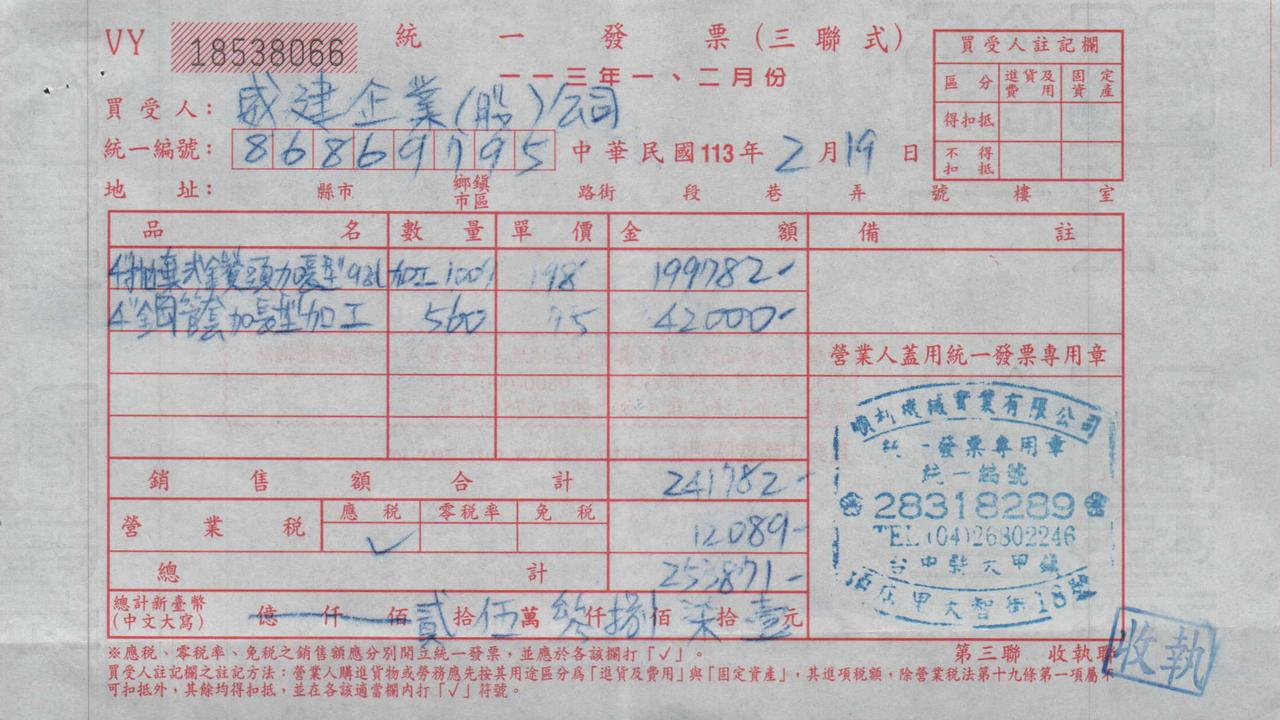 VY 18538066 統一發票(三聯式)
一一三年一、二月份
買受人註記欄
區分 進貨及費用 固定資產
得扣抵
不得扣抵
買受人: 威建企業(股)公司
統一編號: 86869795 中華民國113年2月19日
地址: 縣市 鄉鎮市區 路街 段 巷 弄 號 樓 室
品名 數量 單價 金額 備註
加長型 加工 1009 198 199782-
4"鋼管套加長型加工 560 75 42000-
營業人蓋用統一發票專用章
銷售額合計 241782-
營業稅 應稅 ✓ 零稅率 免稅 12089-
總計 253871-
總計新臺幣(中文大寫) 億仟佰貳拾伍萬參仟捌佰柒拾壹元
機械實業有限公司
統一發票專用章
統一編號
28318289
TEL(04)26802246
台中縣大甲鎮
大智街18號
※應稅、零稅率、免稅之銷售額應分別開立統一發票,並應於各該欄打「✓」。
第三聯 收執聯
收執
買受人註記欄之註記方法:營業人購進貨物或勞務應先按其用途區分為「進貨及費用」與「固定資產」,其進項稅額,除營業稅法第十九條第一項屬不
可扣抵外,其餘均得扣抵,並在各該適當欄內打「✓」符號。